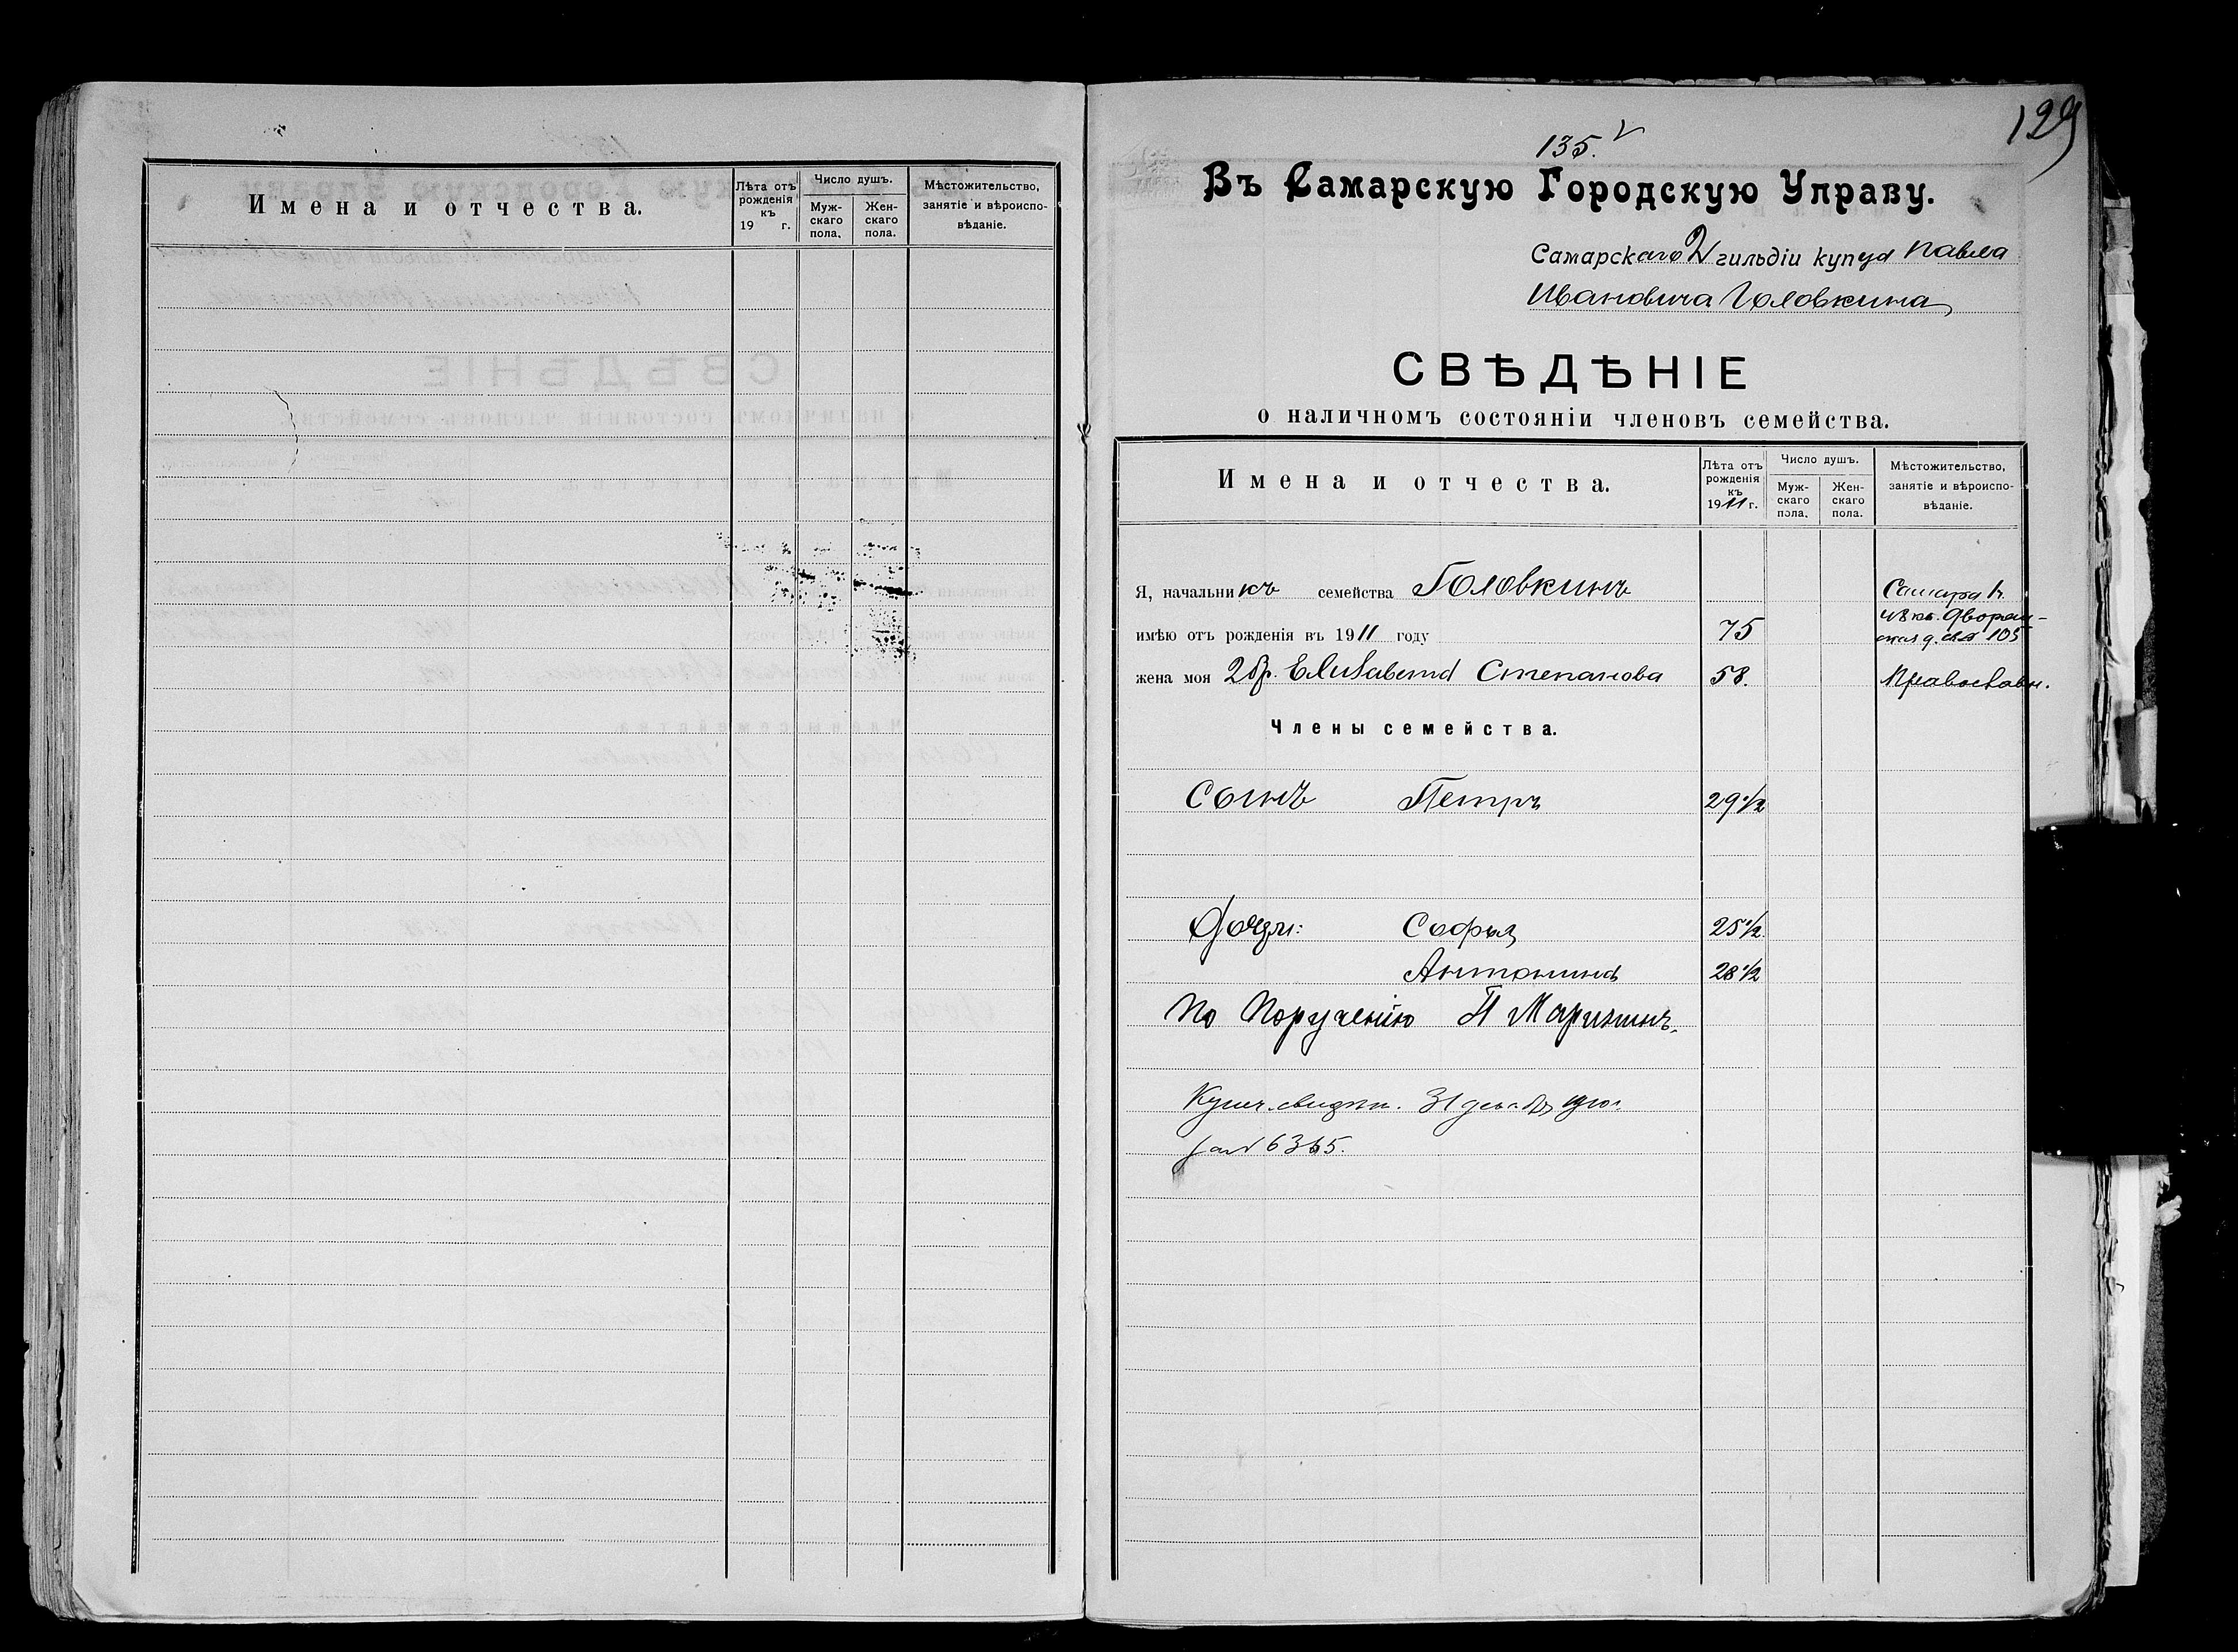 Имена и отчества.
Лѣта отъ рожденія къ 19 г.
Число душъ.
Муж-скаго пола.
Жен-скаго пола.
Мѣстожительство, занятіе и вѣроиспо-вѣданіе.
129
135.
Въ Самарскую Городскую Управу.
Самарскаго 2 гильдіи купца Павла
Ивановича Головкина
СВѢДѢНІЕ
о наличномъ состояніи членовъ семейства.
Имена и отчества.
Лѣта отъ рожденія къ 1911 г.
Число душъ.
Муж-скаго пола.
Жен-скаго пола.
Мѣстожительство, занятіе и вѣроиспо-вѣданіе.
Я, начальникъ семейства Головкинъ Самара
имѣю отъ рожденія въ 1911 году 75 Дворян-
ская д. 105
жена моя 2 бр. Елизавета Степанова 58. Православн.
Члены семейства.
Сынъ Петръ 29 1/2
Дочери: Софья 25 1/2
Антонина 28 1/2
По Порученію П
Купеч. свидѣт. 31 декабря 1910 г.
за № 6365.